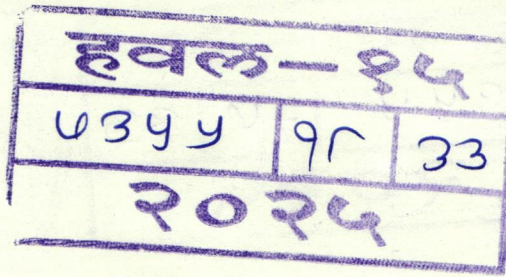 हवल-१५
७३५५ १८ ३३
२०२५